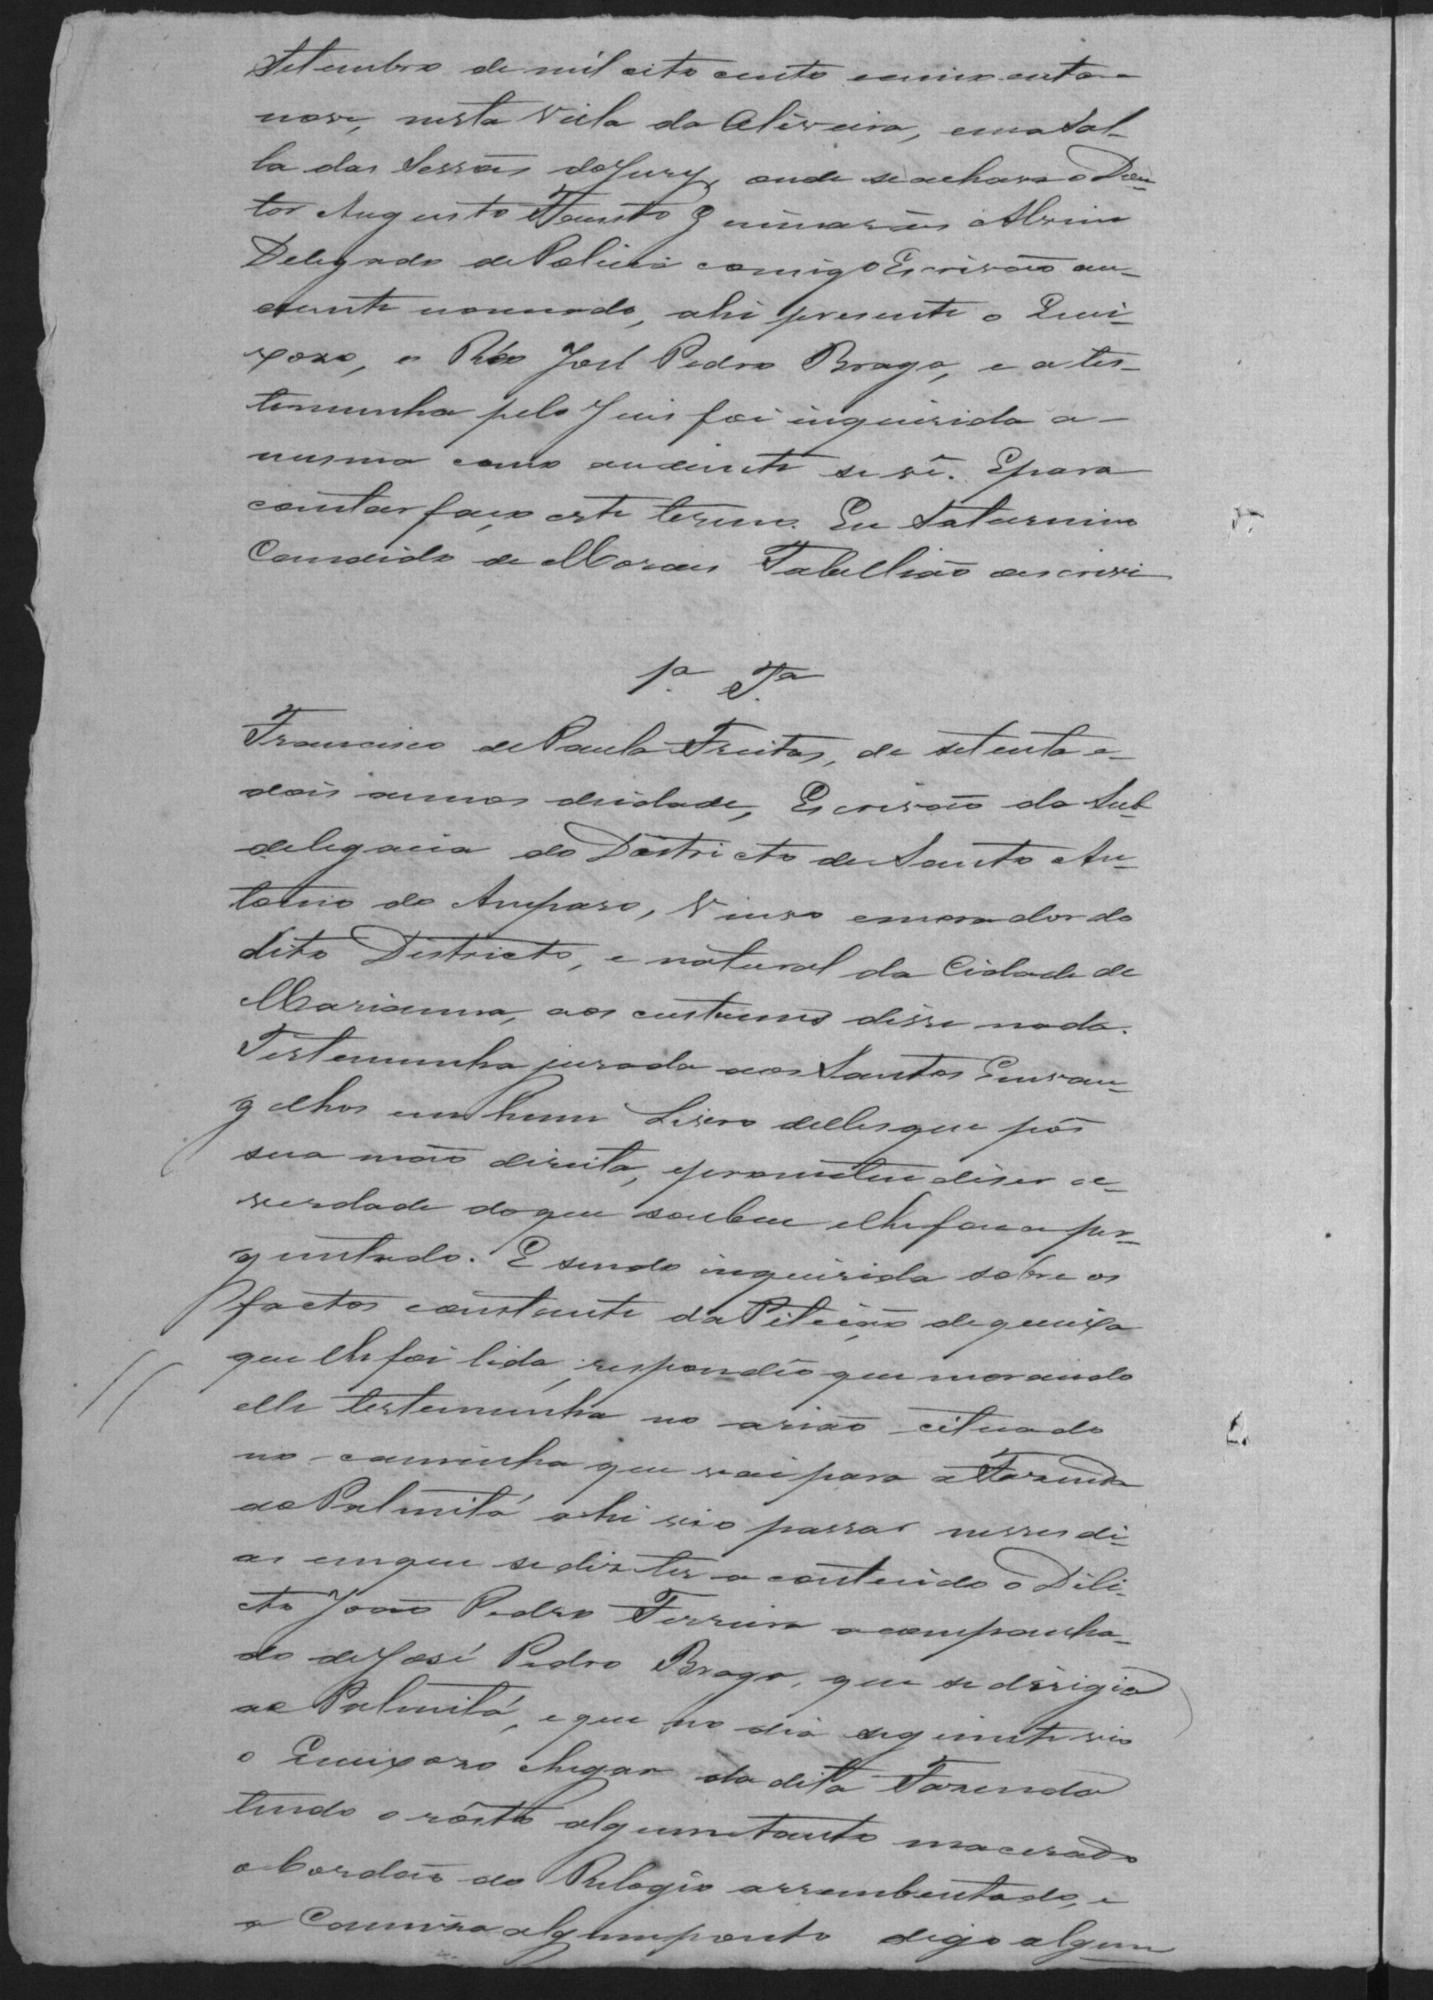 Setembro de mil oito cento e cincoenta e
nove, nesta Villa da Oliveira, em a Sal-
la das Sessões do Jury, onde se achava o Dou-
tor Augusto Fausto Guimarães Alvim
Delegado de Policia comigo Escrivão au-
diante nomeado, ahi presente o Quei-
xozo, o Réo José Pedro Braga, e a tes-
temunha pelo Juis foi inquirida a
mesma como audiente se vê. E para
constar faço este termo. Eu Saturnino
Candido de Moraes Tabellião o escrevi
1ª Tª
Francisco de Paula Freitas, de setenta e
dois annos de idade, Escrivão da Sub
delegacia do Districto de Santo An-
tonio do Amparo, Viuvo e morador do
dito Districto, e natural da Cidade de
Marianna, aos custumes disse nada.
Testemunha jurada aos Santos Envan-
gelhos em hum Livro delles que pôs
sua mão direita, e prometeu diser a
verdade do que soubeu e lhe fou a per-
guntado. E sendo inquirida sobre os
factos constante da Petição de queixa
que lhe foi lida, respondêo que morando
elle testemunha no arião cituado
no caminho que vai para a Fazenda
do Palmitá ahi vio passar nesses di-
as em que se diz ter acontecido o Deli-
cto João Pedro Ferreira acompanha-
do de José Pedro Braga, que se dirigia
ao Palmitá, e que no dia seguinte vio
o Queixozo chegar da dita Fazenda
tendo o rôsto algum tanto macerado
o Cordão do Relogio arrembentado, e
a Camiza algum ponto digo algum